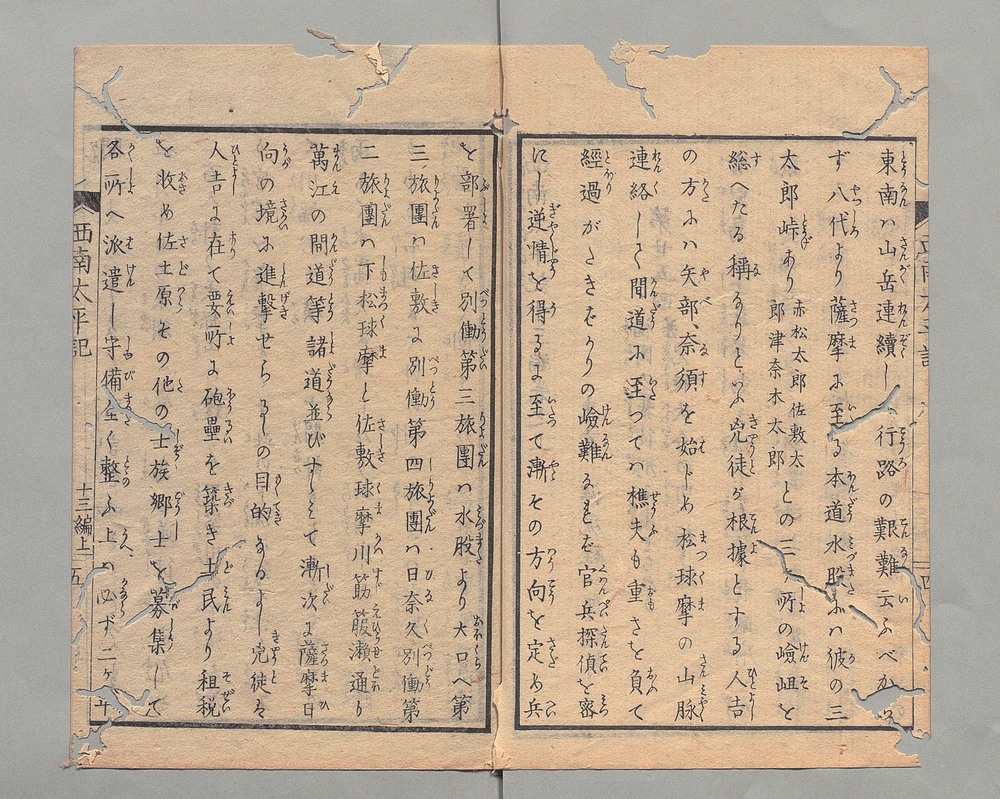 東南ハ山岳連續し行路の艱難云ふべか
ず八代より薩摩に至る本道水股にハ彼の三
太郎峠あり
赤松太郎佐敷太
郎津奈木太郎
との三ヶ所の嶮岨を
総へたる稱なりといふ兇徒が根據とする人吉
の方にハ矢部、奈須を始とめ松球摩の山脉
連絡して間道に至つてハ樵夫も重さを負て
經過がたきばかりの嶮難なれど官兵探偵を密
にし逆情を得るに至て漸その方向を定め兵
を部署して別働第三旅團ハ水股より大口へ第
三旅團ハ佐敷に別働第四旅團ハ日奈久別働第
二旅團ハ下松球摩と佐敷球摩川筋箙瀬通り
萬江の間道等諸道並びすゝて漸次に薩摩日
向の境に進撃せらるゝの目的なるよし兇徒は
人吉に在て要所に砲壘を築き土民より租税
を收め佐土原その他の士族郷士を募集して
各所へ派遣し守備全く整ふ上ハ必ず二ヶ
西南太平記
十三編上
五